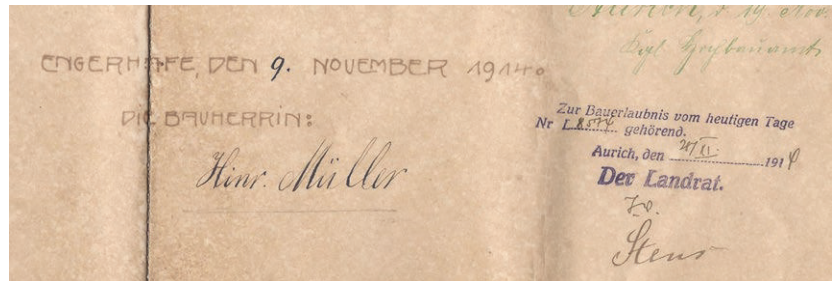 Aurich, d. 19. Nov.
Kgl. Hochbauamt
ENGERHAFE, DEN 9. NOVEMBER 1914.
DIE BAUHERRIN:
Hinr. Müller
Zur Bauerlaubnis vom heutigen Tage
Nr L 8574 gehörend.
Aurich, den 1914
Der Landrat.